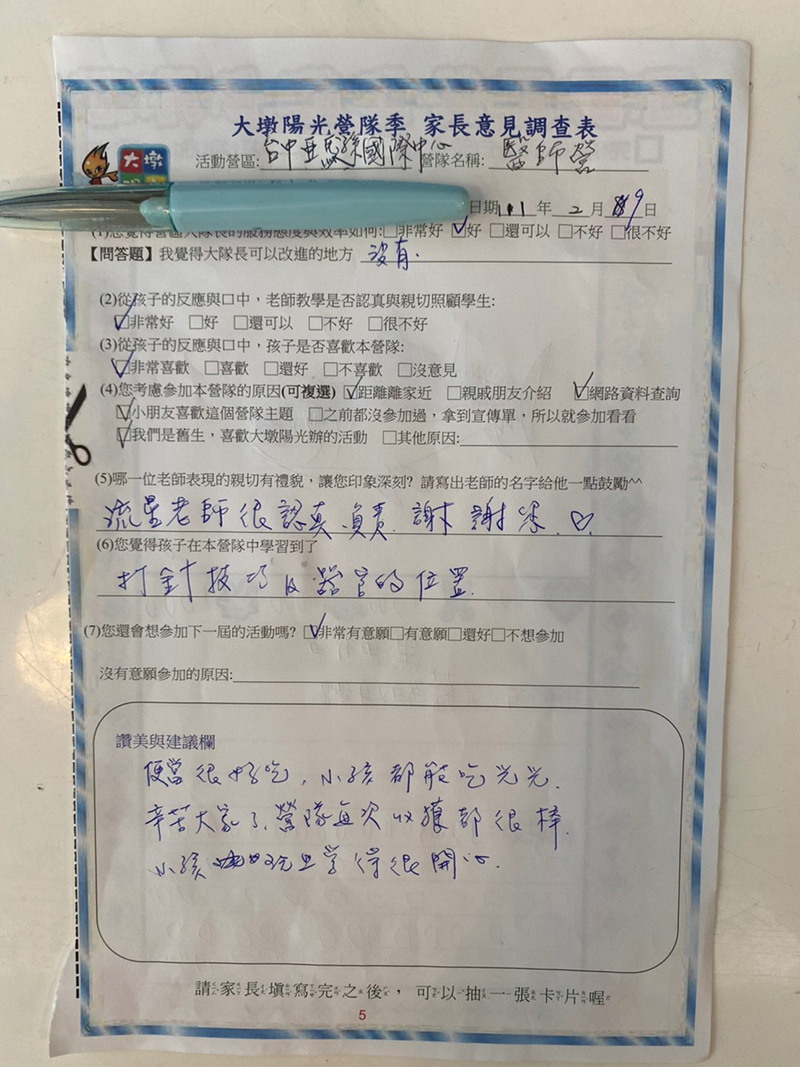 大墩陽光營隊季 家長意見調查表
大墩
活動營區:台中亞緻國際中心 營隊名稱:醫師營
日期111年2月9日
(1)您覺得營區大隊長的服務態度與效率如何:□非常好 ☑好 □還可以 □不好 □很不好
【問答題】我覺得大隊長可以改進的地方 沒有.
(2)從孩子的反應與口中,老師教學是否認真與親切照顧學生:
☑非常好 □好 □還可以 □不好 □很不好
(3)從孩子的反應與口中,孩子是否喜歡本營隊:
☑非常喜歡 □喜歡 □還好 □不喜歡 □沒意見
(4)您考慮參加本營隊的原因(可複選) ☑距離離家近 □親戚朋友介紹 ☑網路資料查詢
☑小朋友喜歡這個營隊主題 □之前都沒參加過,拿到宣傳單,所以就參加看看
☑我們是舊生,喜歡大墩陽光辦的活動 □其他原因:
(5)哪一位老師表現的親切有禮貌,讓您印象深刻? 請寫出老師的名字給他一點鼓勵^^
流星老師很認真負責.謝謝您.♡
(6)您覺得孩子在本營隊中學習到了
打針技巧及器官的位置.
(7)您還會想參加下一屆的活動嗎? ☑非常有意願□有意願□還好□不想參加
沒有意願參加的原因:
讚美與建議欄
便當很好吃,小孩都能吃光光.
辛苦大家了,營隊每次收穫都很棒.
小孩 玩且學得很開心.
請家長填寫完之後, 可以抽一張卡片喔
5